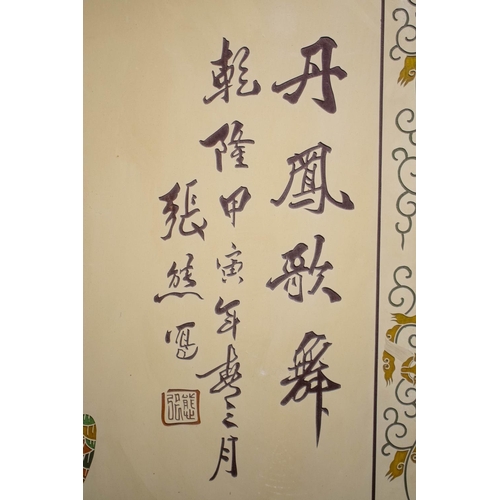 丹鳳歌舞
乾隆甲寅年春三月
張熊寫
張熊